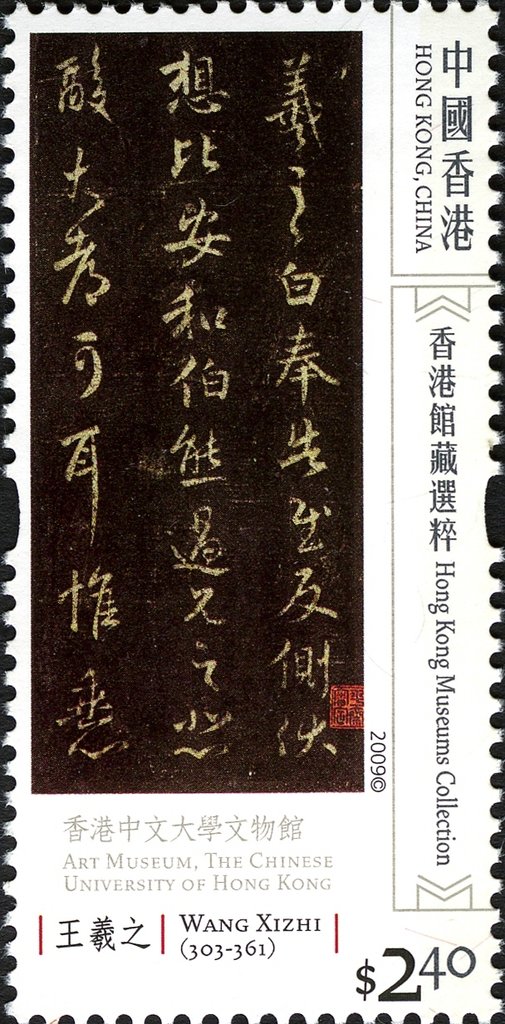 中國香港
HONG KONG, CHINA
《香港館藏選粹》Hong Kong Museums Collection
羲之白奉告反側伏
想比安和伯熊過見之悲
酸大可耳惟
2009©
香港中文大學文物館
ART MUSEUM, THE CHINESE
UNIVERSITY OF HONG KONG
王羲之
WANG XIZHI
(303-361)
$2.40